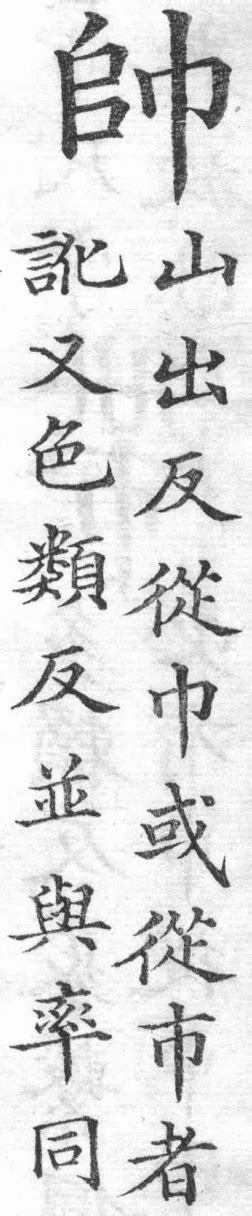 帥
山出反從巾或從市者
訛又色類反並與率同